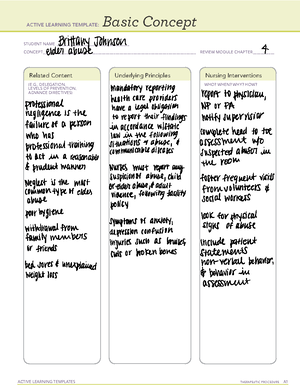 ACTIVE LEARNING TEMPLATE: Basic Concept
STUDENT NAME Brittany Johnson
CONCEPT elder abuse
REVIEW MODULE CHAPTER 4
Related Content
(E.G., DELEGATION,
LEVELS OF PREVENTION,
ADVANCE DIRECTIVES)
professional
negligence is the
failure of a person
who has
professional training
to act in a reasonable
& prudent manner
Neglect is the most
common type of elder
abuse
poor hygiene
withdrawal from
family members
or friends
bed sores & unexplained
weight loss
Underlying Principles
mandatory reporting
health care providers
have a legal obligation
to report their findings
in accordance w/state
law in the following
situations of abuse, &
communicable diseases
Nurses must report any
suspicion of abuse, child
or elder abuse, & adult
violence, following facility
policy
symptoms of anxiety,
depression confusion
injuries such as bruises,
cuts or broken bones
Nursing Interventions
WHO? WHEN? WHY? HOW?
report to physician,
NP or PA
notify supervisor
complete head to toe
assessment w/o
suspected abuser in
the room
foster frequent visits
from volunteers &
social workers
look for physical
signs of abuse
include patient
statements
non-verbal behavior,
& behavior in
assessment
ACTIVE LEARNING TEMPLATES
THERAPEUTIC PROCEDURE